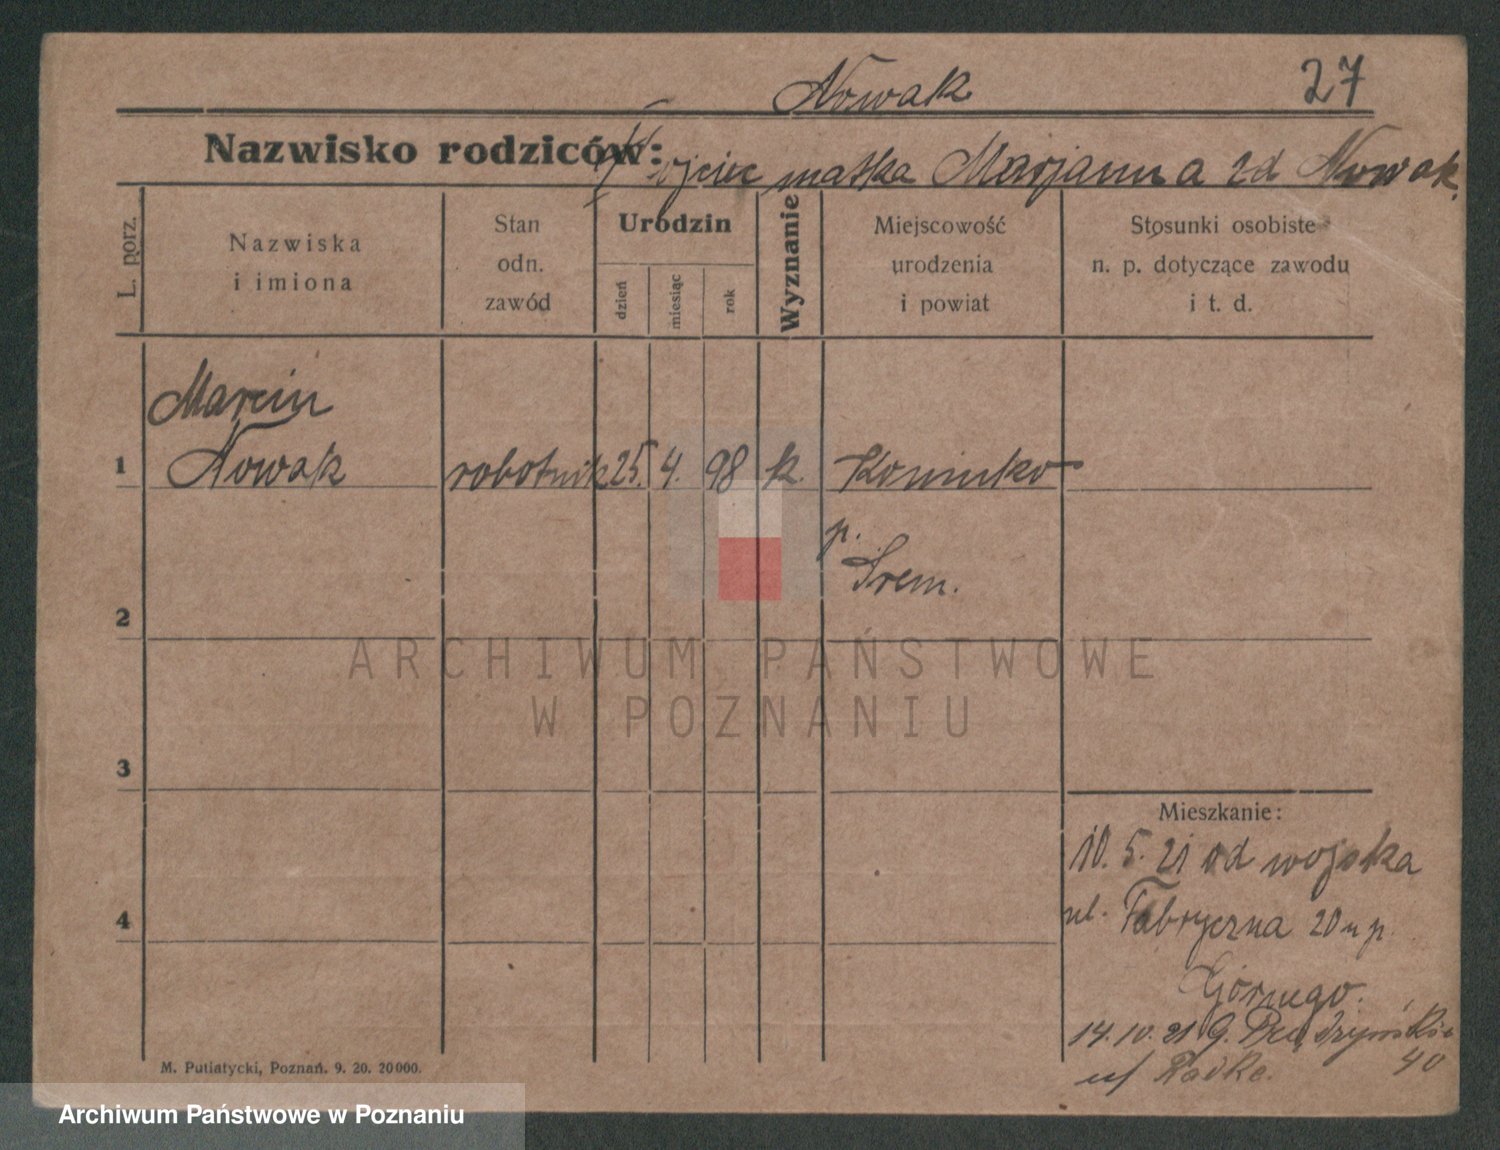 Nowak 27
Nazwisko rodziców: ojciec matka Marjanna zd Nowak
L. porz.
Nazwiska
i imiona
Stan
odn.
zawód
Urodzin
dzień
miesiąc
rok
Wyznanie
Miejscowość
urodzenia
i powiat
Stosunki osobiste
n. p. dotyczące zawodu
i t. d.
Marcin
1 Nowak robotnik 25. 4. 98 k. Koninko
p.
Śrem.
2
ARCHIWUM PAŃSTWOWE
W POZNANIU
3
Mieszkanie:
10. 5. 21 od wojska
4
ul. Fabryczna 20 u p.
Górnego.
14. 10. 21 G.
40
u/
M. Putiatycki, Poznań. 9. 20. 20000.
Archiwum Państwowe w Poznaniu